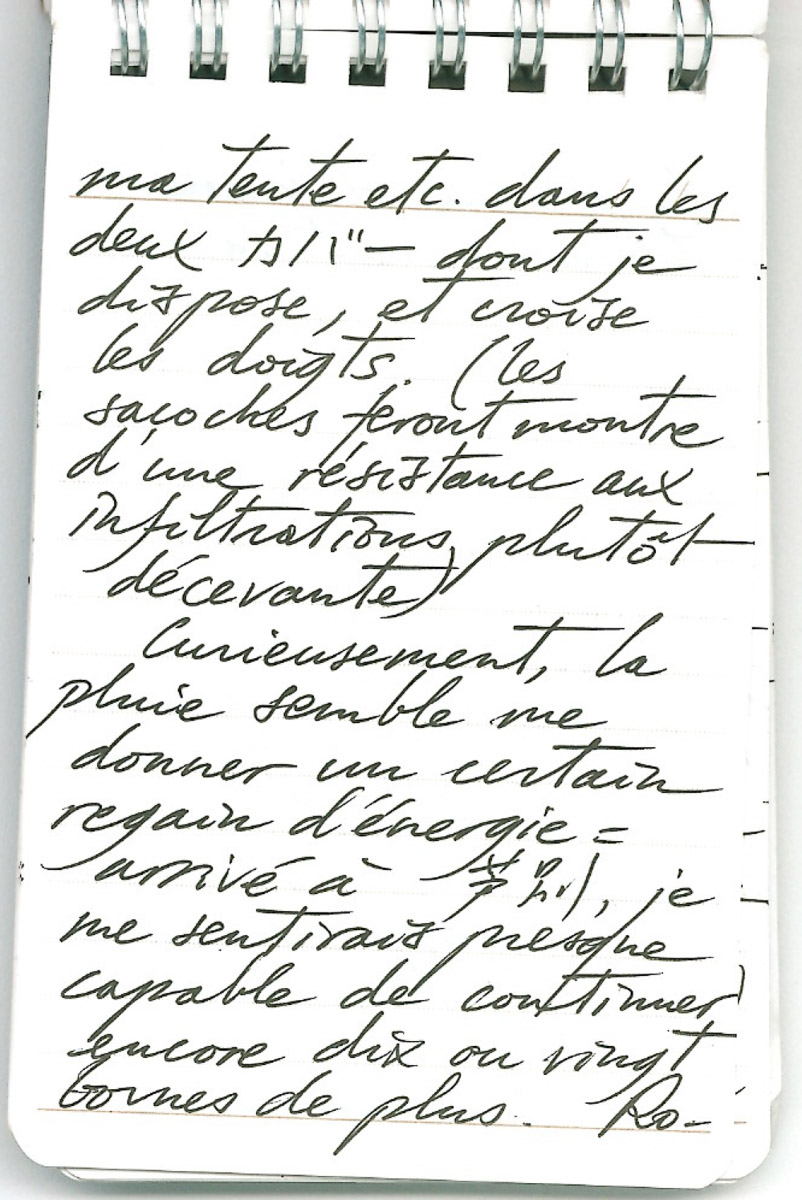 ma tente etc. dans les
deux カバー dont je
dispose, et croise
les doigts. (les
sacoches feront montre
d'une résistance aux
infiltrations plutôt
décevante)
Curieusement, la
pluie semble me
donner un certain
regain d'énergie :
arrivé à 芦別, je
me sentirais presque
capable de continuer
encore dix ou vingt
bornes de plus. Ro-